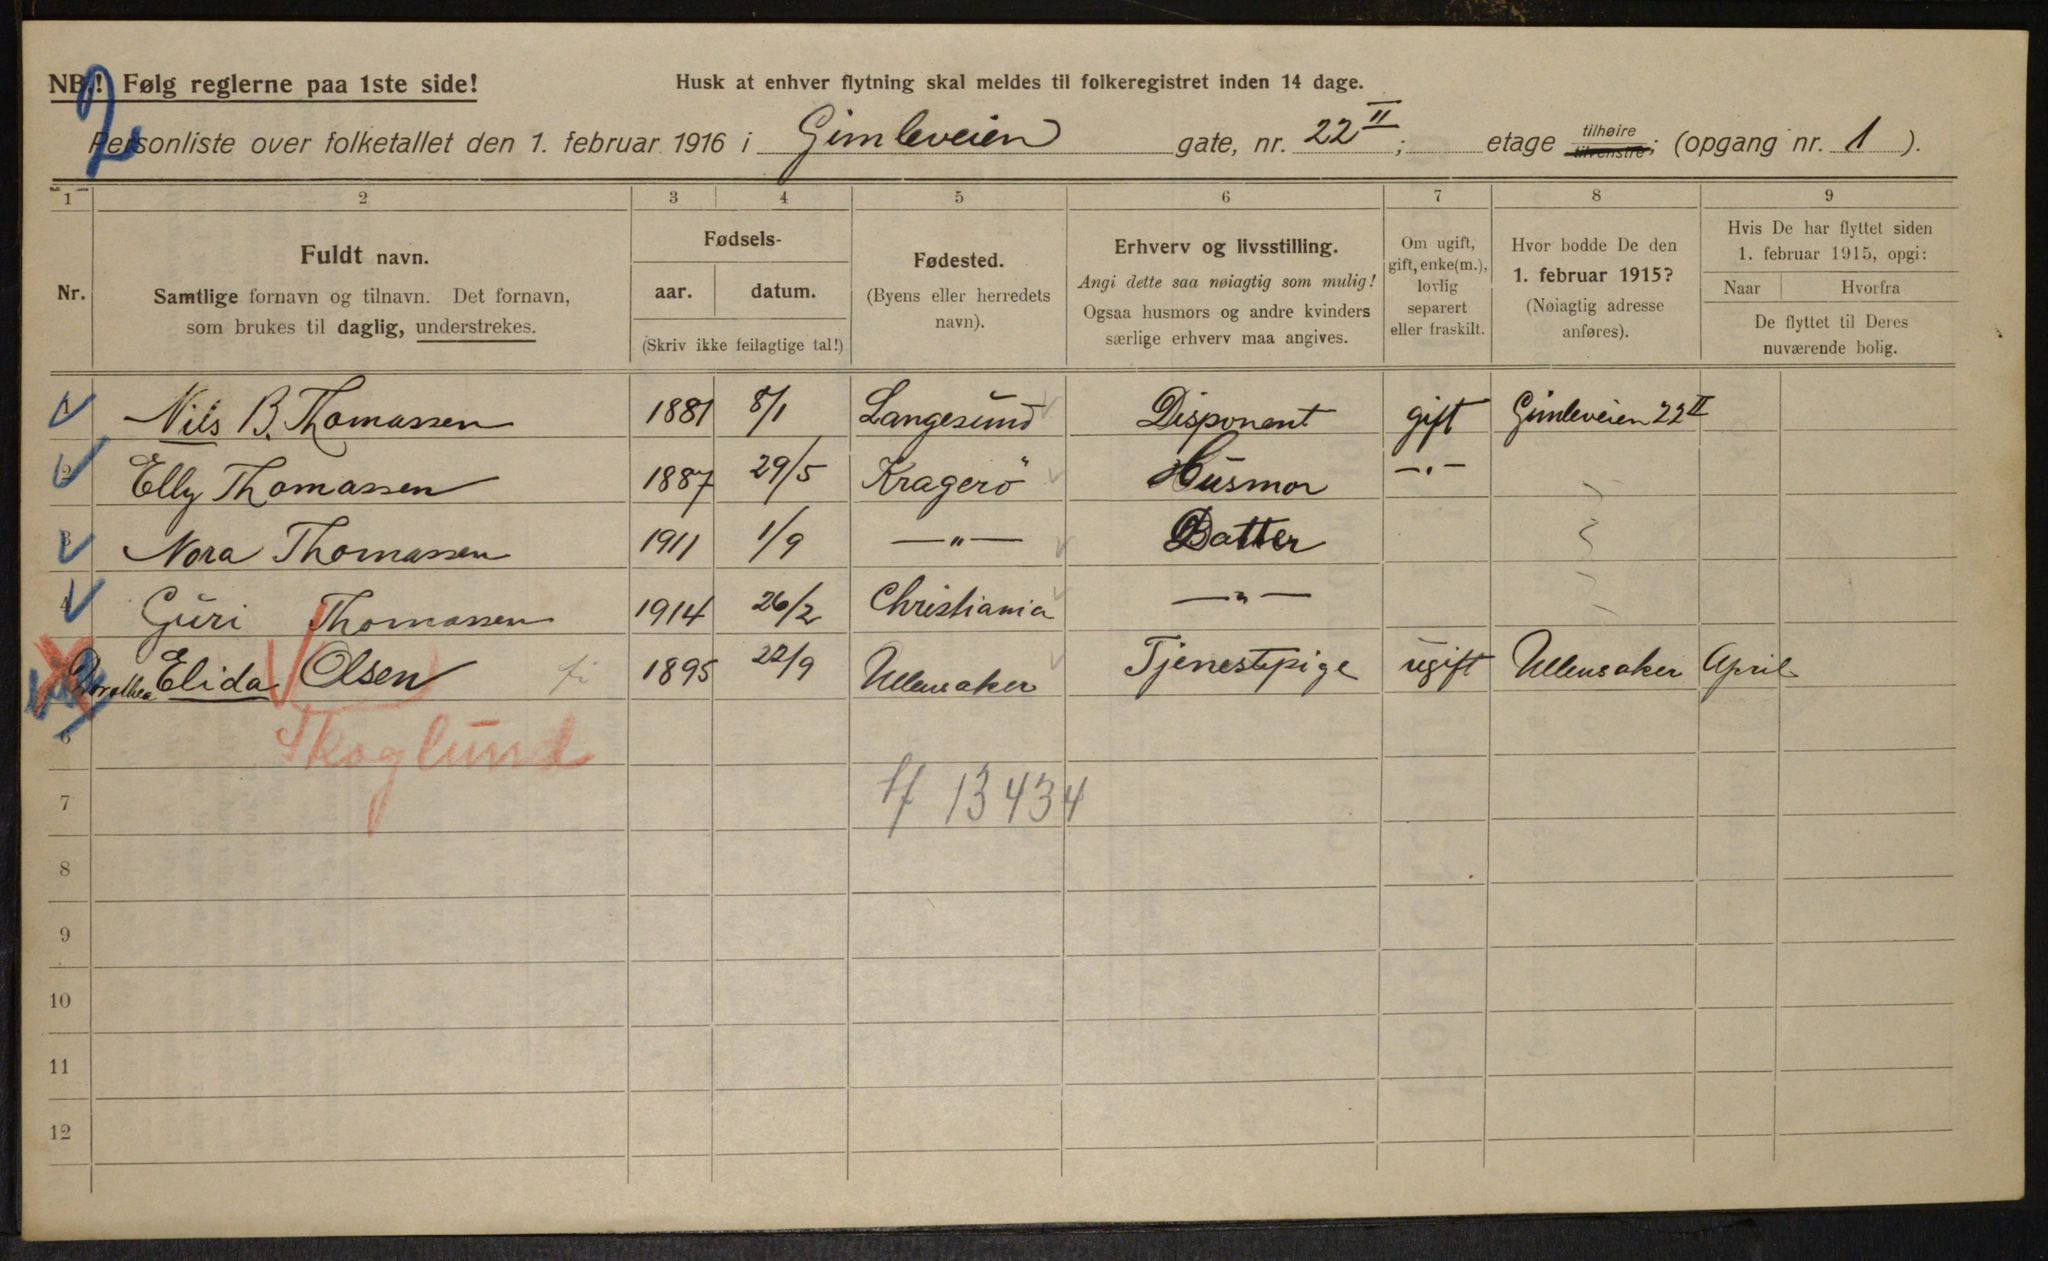 NB.! Følg reglerne paa 1ste side! Husk at enhver flytning skal meldes til folkeregistret inden 14 dage.
2
Personliste over folketallet den 1. februar 1916 i Gimleveien gate, nr. 22 II; etage tilhøire tilvenstre; (opgang nr. 1).
1 2 3 4 5 6 7 8 9
Nr. Fuldt navn. Samtlige fornavn og tilnavn. Det fornavn, som brukes til daglig, understrekes.
Fødsels- aar. datum. (Skriv ikke feilagtige tal!)
Fødested. (Byens eller herredets navn).
Erhverv og livsstilling. Angi dette saa nøiagtig som mulig! Ogsaa husmors og andre kvinders særlige erhverv maa angives.
Om ugift, gift, enke(m.), lovlig separert eller fraskilt.
Hvor bodde De den 1. februar 1915? (Nøiagtig adresse anføres).
Hvis De har flyttet siden 1. februar 1915, opgi: Naar Hvorfra De flyttet til Deres nuværende bolig.
1 Nils B. Thomassen 1881 8/1 Langesund Disponent gift Gimleveien 22 II
2 Elly Thomassen 1887 29/5 Kragerö Husmor —„—
3 Nora Thomassen 1911 1/9 —„— Datter
4 Guri Thomassen 1914 26/2 Christiania —„—
Dorothea Elida Olsen 1895 22/9 Ullensaker Tjenestpige ugift Ullensaker April
6 Skoglund
7 13434
8
9
10
11
12